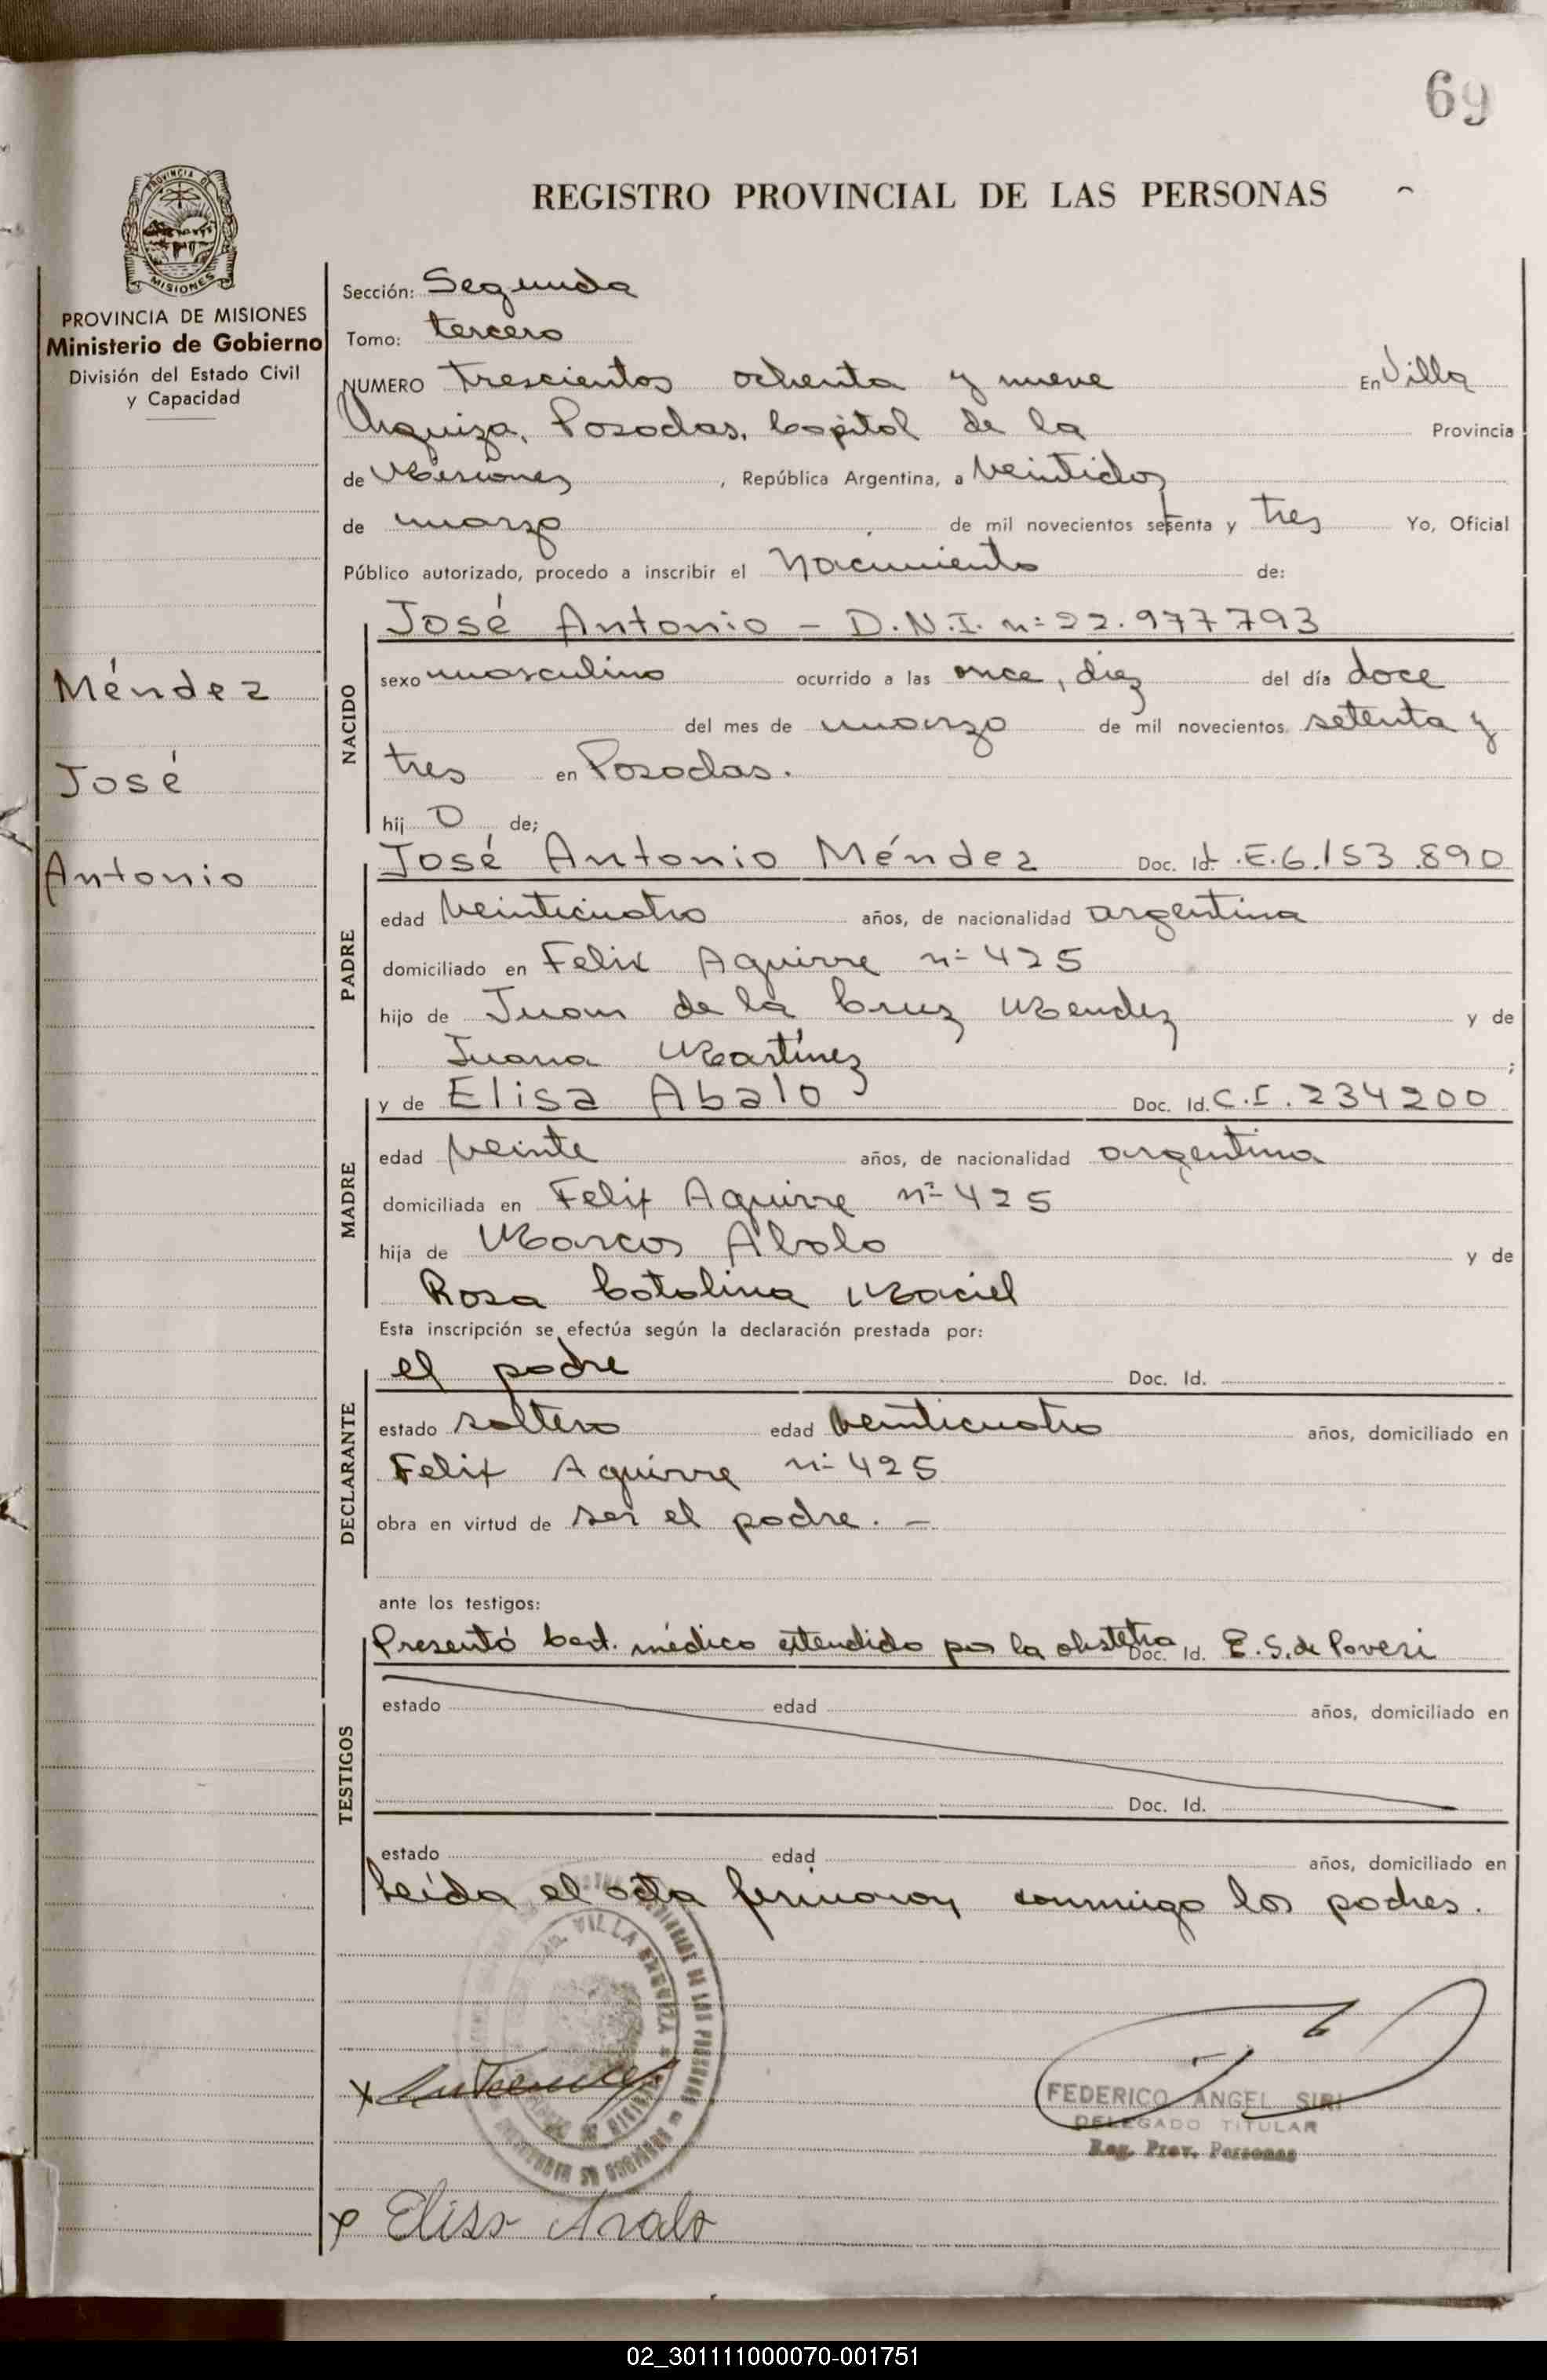 69
REGISTRO PROVINCIAL DE LAS PERSONAS
PROVINCIA DE
MISIONES
PROVINCIA DE MISIONES
Ministerio de Gobierno
División del Estado Civil
y Capacidad
Méndez
José
Antonio
Sección: Segunda
Tomo: tercero
NUMERO trescientos ochenta y nueve En Villa
Urquiza, Posadas, Capital de la Provincia
de Misiones, República Argentina, a veintidos
de marzo de mil novecientos setenta y tres Yo, Oficial
Público autorizado, procedo a inscribir el Nacimiento de:
NACIDO
José Antonio - D.N.I. nº 22.977793
sexo masculino ocurrido a las once, diez del día doce
del mes de marzo de mil novecientos setenta y
tres en Posadas.
hij o de;
PADRE
José Antonio Méndez Doc. Id. L.E.6.153.890
edad veinticuatro años, de nacionalidad argentina
domiciliado en Felix Aguirre nº 425
hijo de Juan de la Cruz Mendez y de
Juana Martínez ;
MADRE
y de Elisa Abalo Doc. Id. C.I. 234200
edad veinte años, de nacionalidad argentina
domiciliada en Felix Aguirre nº 425
hija de Marcos Abalo y de
Rosa Catalina Maciel
Esta inscripción se efectúa según la declaración prestada por:
DECLARANTE
el padre Doc. Id.
estado soltero edad veinticuatro años, domiciliado en
Felix Aguirre nº 425
obra en virtud de ser el padre. -
ante los testigos:
TESTIGOS
Presentó cert. médico extendido por la obstetra Doc. Id. E. S. de Poversi
estado edad años, domiciliado en
Doc. Id.
estado edad años, domiciliado en
Leída el acta firmaron conmigo los padres.
VILLA URQUIZA
DE LAS PERSONAS
FEDERICO ANGEL SIRI
DELEGADO TITULAR
Reg. Prov. Personas
x Elisa Avalo
02_301111000070-001751